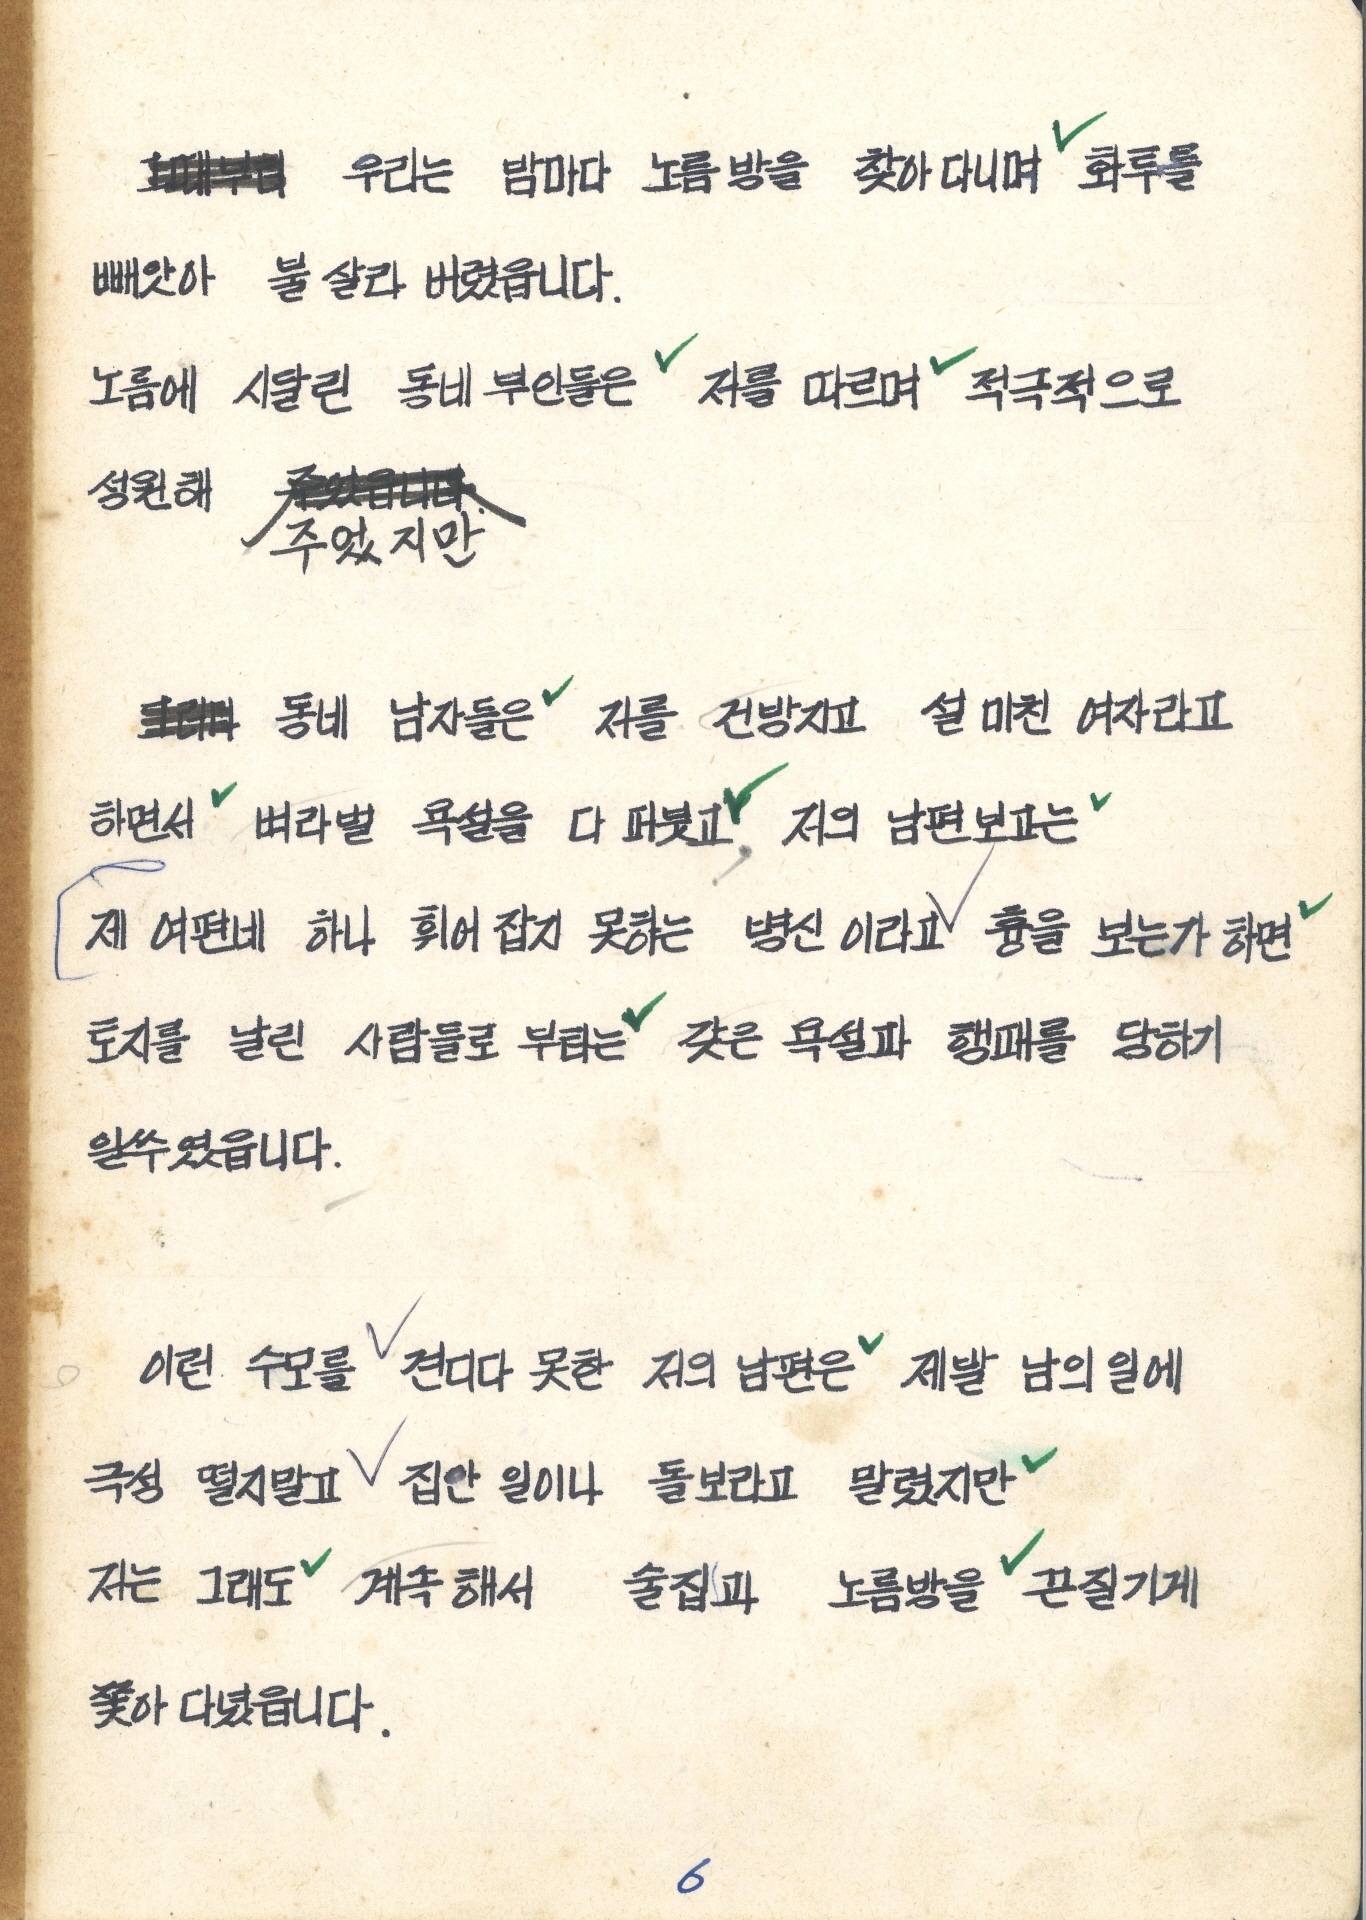 우리는 밤마다 노름방을 찾아다니며 화투를
빼앗아 불살라 버렸읍니다.
노름에 시달린 동네 부인들은 저를 따르며 적극적으로
성원해
주었지만
동네 남자들은 저를 건방지고 설미친 여자라고
하면서 벼라별 욕설을 다 퍼붓고 저의 남편보고는
제 여편네 하나 휘어잡지 못하는 병신이라고 흉을 보는가 하면
토지를 날린 사람들로 부터는 갖은 욕설과 행패를 당하기
일쑤였읍니다.
이런 수모를 견디다 못한 저의 남편은 제발 남의 일에
극성 떨지말고 집안 일이나 돌보라고 말렸지만
저는 그래도 계속해서 술집과 노름방을 끈질기게
쫓아 다녔읍니다.
6